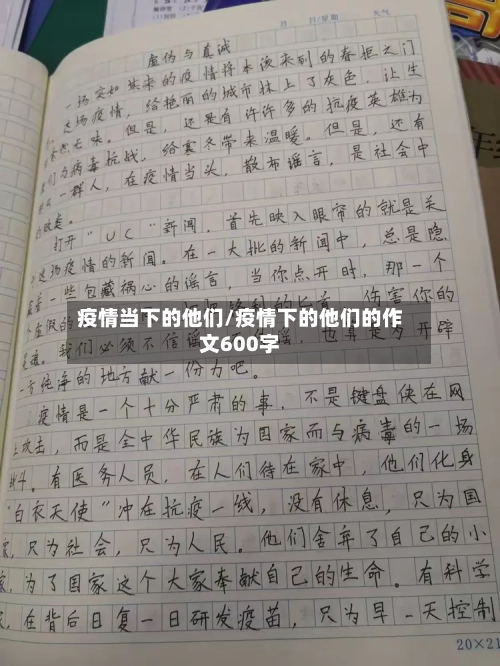 月 日/星期 天气
虚伪与真诚
一场突如其来的疫情将本该来到的春拒之门
这场疫情,给艳丽的城市抹上了灰色,让生
无味。但是,还是有许许多多的抗疫英雄为
我们与病毒抗战,给寒冬带来温暖。但是,还有
一群人,在疫情当头,散布谣言,是社会中
的败类。
打开“UC”新闻,首先映入眼帘的就是关
于这场疫情的新闻。在一大批的新闻中,总是隐
藏着一些包藏祸心的谣言,当你点开时,那一个
虚假的 伤害你的
我们必须不信谣 也算是为开辟
一方纯净的地方献一份力吧。
疫情下的他们的作
疫情当下的他们/疫情下的他们的作
文600字
疫情是一个十分严肃的事,不是键盘侠在网
上攻击,而是全中华民族为国家而与病毒的一场
战斗。有医务人员,在人们待在家中,他们化身
“白衣天使”冲在抗疫一线,没有休息,只为国
家,只为社会,只为人民。他们舍弃了自己的小
家,为了国家这个大家奉献自己的生命。有科学
家,在背后日复一日研发疫苗,只为早一天控制
20×21